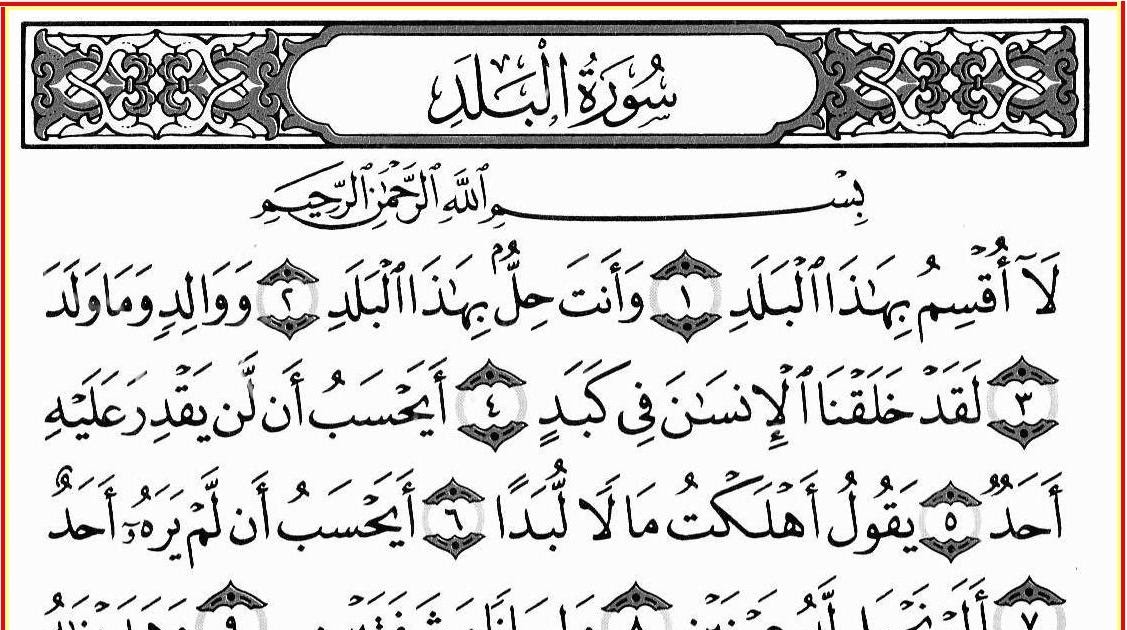 سُورَةُ الْبَلَدِ
بِسْمِ ٱللَّهِ ٱلرَّحْمَٰنِ ٱلرَّحِيمِ
لَآ أُقْسِمُ بِهَٰذَا ٱلْبَلَدِ ١ وَأَنتَ حِلٌّۢ بِهَٰذَا ٱلْبَلَدِ ٢ وَوَالِدٍ وَمَا وَلَدَ
٣ لَقَدْ خَلَقْنَا ٱلْإِنسَٰنَ فِى كَبَدٍ ٤ أَيَحْسَبُ أَن لَّن يَقْدِرَ عَلَيْهِ
أَحَدٌ ٥ يَقُولُ أَهْلَكْتُ مَالًا لُّبَدًا ٦ أَيَحْسَبُ أَن لَّمْ يَرَهُۥٓ أَحَدٌ